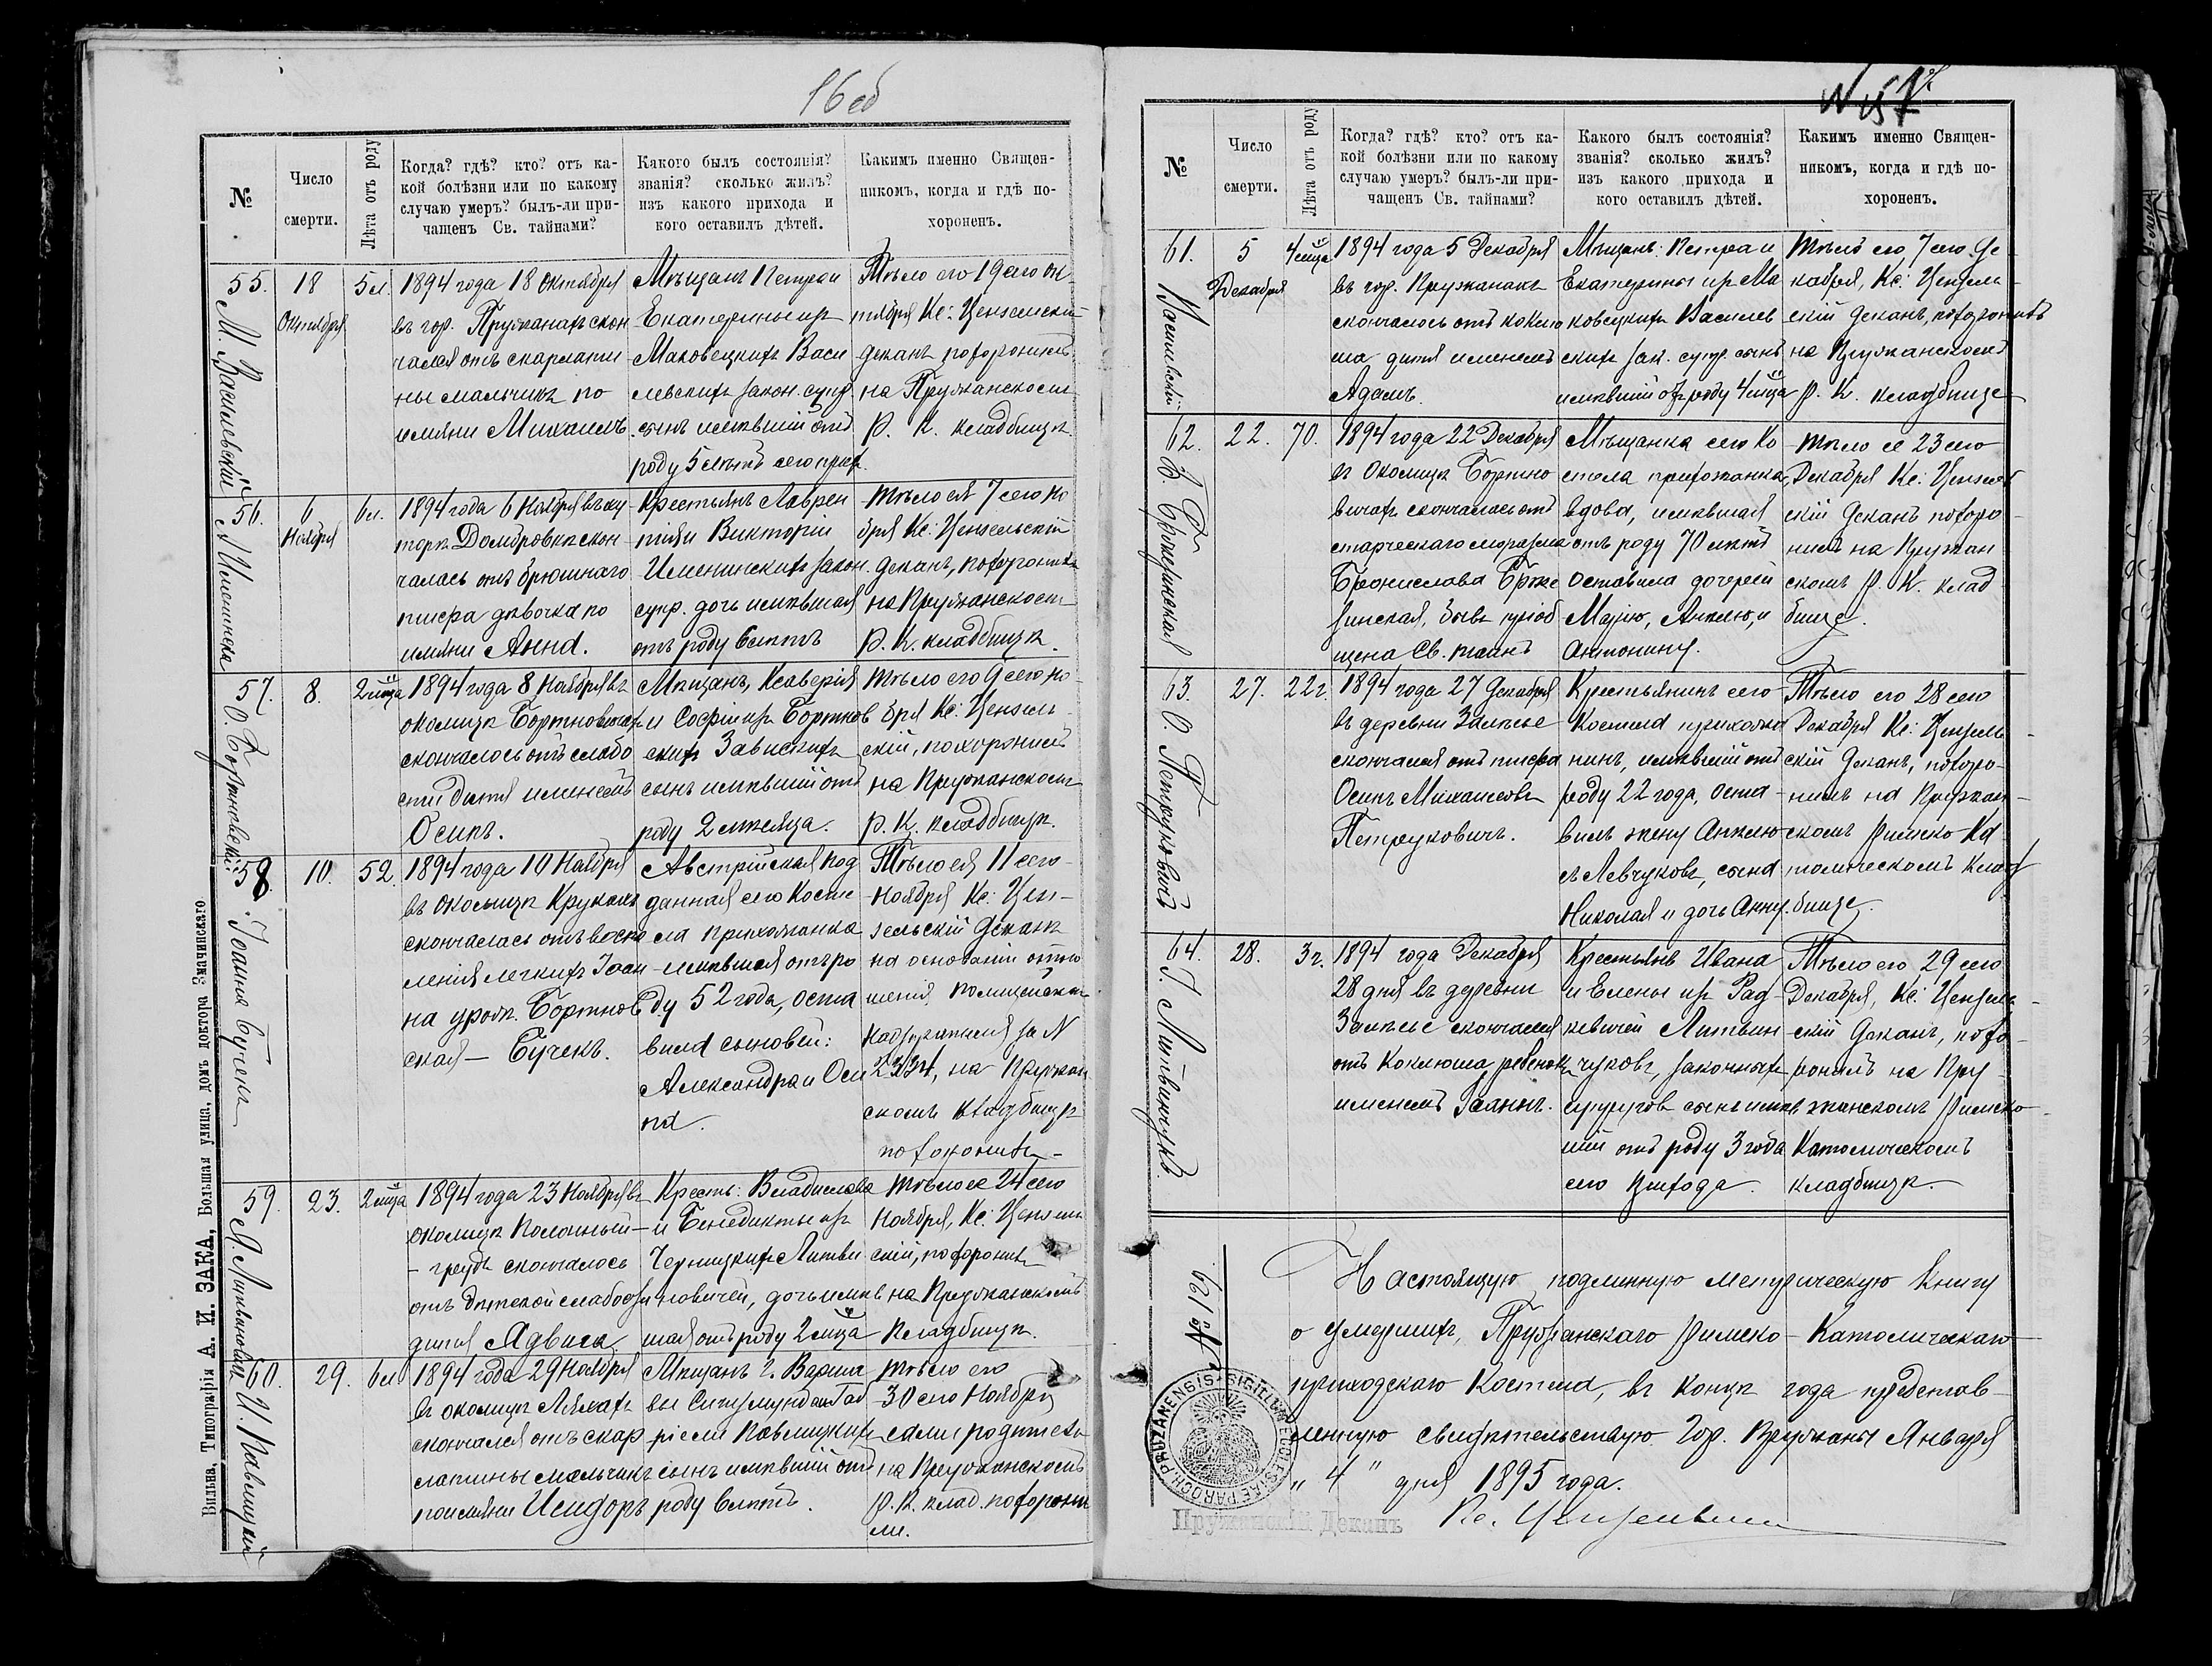 16 об
№
Число
смерти.
Лѣта отъ роду
Когда? гдѣ? кто? отъ ка-
кой болѣзни или по какому
случаю умеръ? былъ-ли при-
чащенъ Св. тайнами?
Какого былъ состоянія?
званія? сколько жилъ?
изъ какого прихода и
кого оставилъ дѣтей.
Какимъ именно Священ-
никомъ, когда и гдѣ по-
хороненъ.
55.
М. Василевскій
18
Октября
5 л.
1894 года 18 Октября
въ гор. Пружанахъ скон
чался отъ скарлати
ны мальчикъ по
имяни Михаилъ.
Мѣщанъ Петра и
Екатерины изъ
Маковецкихъ Васи
левскихъ закон. супр.
сынъ имѣвшій отъ
роду 5 лѣтъ сего прих.
Тѣло его 19 сего Ок-
тября Кс: Цензельскій
деканъ похоронилъ
на Пружанскомъ
Р. К. кладбищѣ.
56.
6
Ноября
6 л.
1894 года 6 Ноября въ ху
торѣ Домбровкѣ скон
чалась отъ брюшнаго
тифа дѣвочка по
имяни Анна.
Крестьянъ Лаврен
тія и Викторіи
супр. дочь имѣвшая
отъ роду 6 лѣтъ
Тѣло ея 7 сего Но
бря Кс: Цензельскій
деканъ, похоронилъ
на Пружанскомъ
Р. К. кладбищѣ.
57.
О. Бортновскій
8.
2 м-ца
1894 года 8 Ноября въ
околицѣ Бортновичахъ
скончалось отъ слабо
сти дитя именемъ
Осипъ.
Мѣщанъ, Ксаверія
и Софіи изъ Бортнов
скихъ
сынъ имѣвшій отъ
роду 2 мѣсяца.
Тѣло его 9 сего Но-
бря Кс: Цензель
скій, похоронилъ
на Пружанскомъ
Р. К. кладбищѣ.
58.
Іоанна Бучекъ
10.
52.
1894 года 10 Ноября
въ околицѣ Крукахъ
скончалась отъ воспа
ленія легкихъ Іоан
на урож. Бортнов
ская - Бучекъ.
Австрійская под
данная сего Косте
ла прихожанка
имѣвшая отъ ро
ду 52 года, оста
вила сыновей:
Александра и Оси
па.
Тѣло ея 11 сего
Ноября Кс: Цен-
зельскій Деканъ
на основаніи отно
шенія Полицейскаго
надзирателя за N
на Пружан
скомъ кладбищѣ
похоронилъ
59.
Я. Литвиновичъ
23.
2 м-ца
1894 года 23 Ноября въ
околицѣ
- грудъ скончалось
отъ дѣтской слабости
дитя Ядвига
Кресть: Владислава
и Бенедикты изъ
Черницкихъ Литви
новичей, дочь имѣв
шая отъ роду 2 м-ца
Тѣло ее 24 сего
Ноября, Кс: Цензель
скій, похоронилъ
на Пружанскомъ
Кладбищѣ.
60.
И. Павлицкій
29.
6 л
1894 года 29 Ноября
въ околицѣ Ляхахъ
скончался отъ скар
латины мальчикъ
по имяни Исидоръ
Мѣщанъ г. Варша
вы Сигизмунда и Габ
ріели Павлицкихъ
сынъ имѣвшій отъ
роду 6 лѣтъ.
Тѣло его
30 сего Ноября
сами родители
на Пружанскомъ
Р. К. клад. похорони
ли.
Вильна, Типографія А. И. ЗАКА, Большая улица, домъ доктора Значинскаго
№
Число
смерти.
Лѣта отъ роду
Когда? гдѣ? кто? отъ ка-
кой болѣзни или по какому
случаю умеръ? былъ-ли при-
чащенъ Св. тайнами?
Какого былъ состоянія?
званія? сколько жилъ?
изъ какого прихода и
кого оставилъ дѣтей.
Какимъ именно Священ-
никомъ, когда и гдѣ по-
хороненъ.
61.
Василевскій
5
Декабря
4 м-ца
1894 года 5 Декабря
въ гор. Пружанахъ
скончалось отъ коклю
ша дитя именемъ
Адамъ.
Мѣщанъ: Петра и
Екатерины изъ Ма
ковецкихъ Василев
скихъ зак. супр. сынъ
имѣвшій отъ роду 4 м-ца
Тѣло его 7 сего Де
кабря, Кс: Цензель
скій Деканъ, похоронилъ
на Пружанскомъ
Р. К. кладбище
62.
Б. Бржезинская
22.
70.
1894 года 22 Декабря
въ Околицѣ Бортно
вичахъ скончалась отъ
старческаго маразма
Брониславa Брже
зинская, бывъ пріоб
щена Св. таинъ
Мѣщанка сего Ко
стела прихожанка,
вдова, имѣвшая
отъ роду 70 лѣтъ
Оставила дочерей
Марію, Анелю, и
Антонину.
Тѣло ее 23 сего
Декабря Кс: Цензель
скій Деканъ похоро
нилъ на Пружан
скомъ Р. К. клад
бище.
63.
О. Петруковичъ
27.
22 г.
1894 года 27 Декабря
въ деревни Залѣсье
скончался отъ тифа
Осипъ Михаиловъ
Петруковичъ.
Крестьянинъ сего
Костела прихожа
нинъ, имѣвшій отъ
роду 22 года, оста-
вилъ жену Анелю
съ Левчуковъ, сына
Николая и дочь Анну.
Тѣло его 28 сего
Декабря Кс: Цензель
скій Деканъ, похоро-
нилъ на Пружан-
скомъ Римско Ка
толическомъ Клад
бище.
64.
І. Литвинчукъ
28.
3 г.
1894 года Декабря
28 дня въ деревни
Залѣсье скончался
отъ Коклюша ребенокъ
именемъ Іоаннъ.
Крестьянъ Ивана
и Елены изъ Рад-
кевичей Литвин
чуковъ, законныхъ
супруговъ сынъ имѣв
шій отъ роду 3 года
сего Прихода.
Тѣло его 29 сего
Декабря, Кс: Цензель
скій Деканъ, похо-
ронилъ на Пру
жанскомъ Римско-
Католическомъ
кладбищѣ.
Настоящую подлинную метрическую Книгу
о умершихъ, Пружанскаго Римско-Католическаго
приходскаго Костела, въ концѣ года представ-
ленную свидѣтельствую. Гор. Пружаны Января
„ 4 " дня 1895 года.
Пружанскій Деканъ
Кс. Цензельскій
SIGILLUM ECCLESIAE PAROCH. PRUZANENSIS